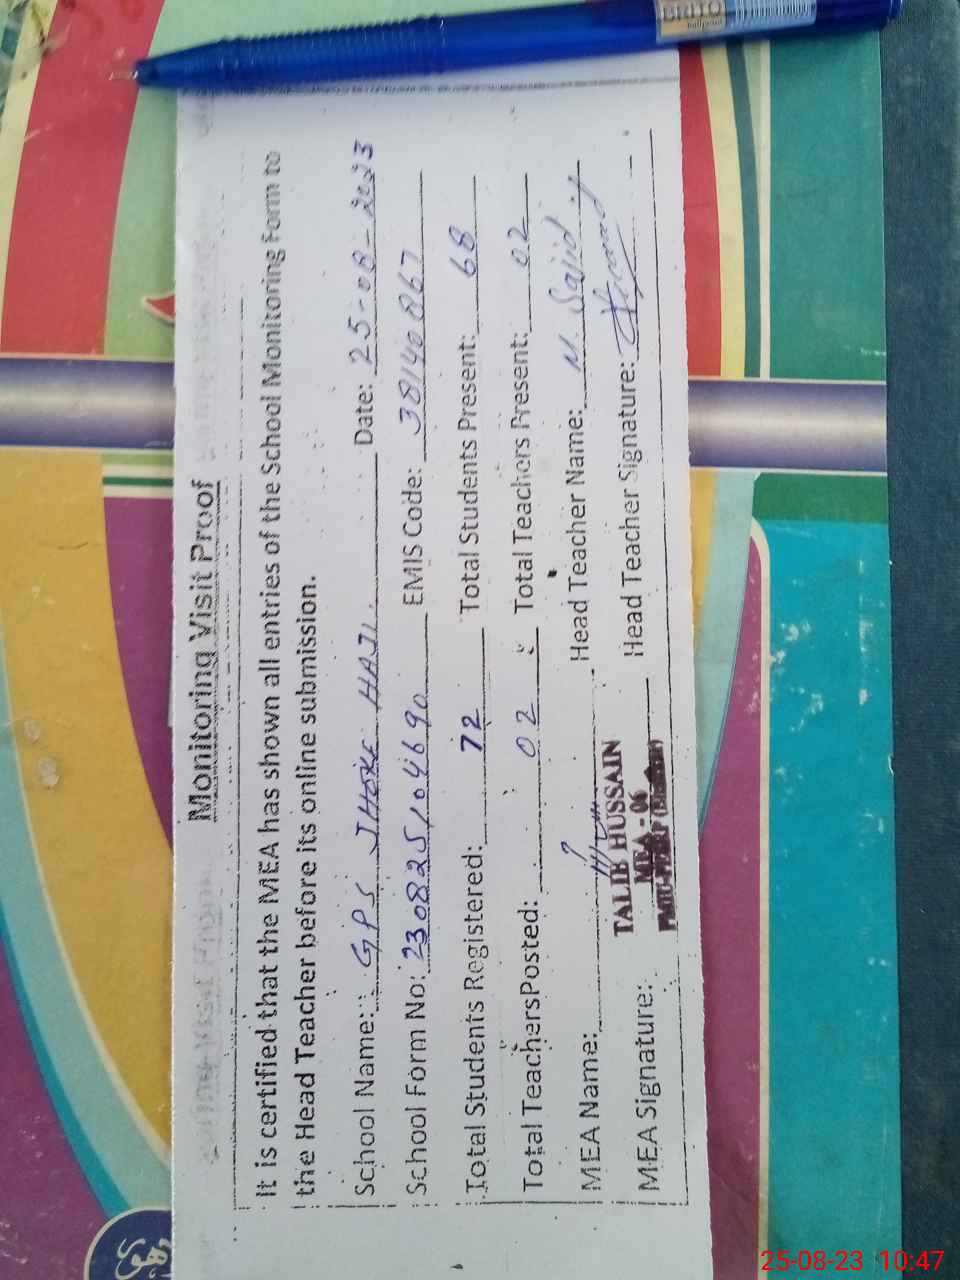 BRITO
ballpoint
Monitoring Visit Proof
It is certified that the MEA has shown all entries of the School Monitoring Form to
the Head Teacher before its online submission.
School Name: GPS JHOKE HAJI Date: 25-08-2023
School Form No: 230825104690 EMIS Code: 38140867
Total Students Registered: 72 Total Students Present: 68
Total TeachersPosted: 02 Total Teachers Present: 02
MEA Name: Head Teacher Name: M. Sajid
TALIB HUSSAIN
MEA - 06
MEA Signature: Head Teacher Signature:
25-08-23 10:47